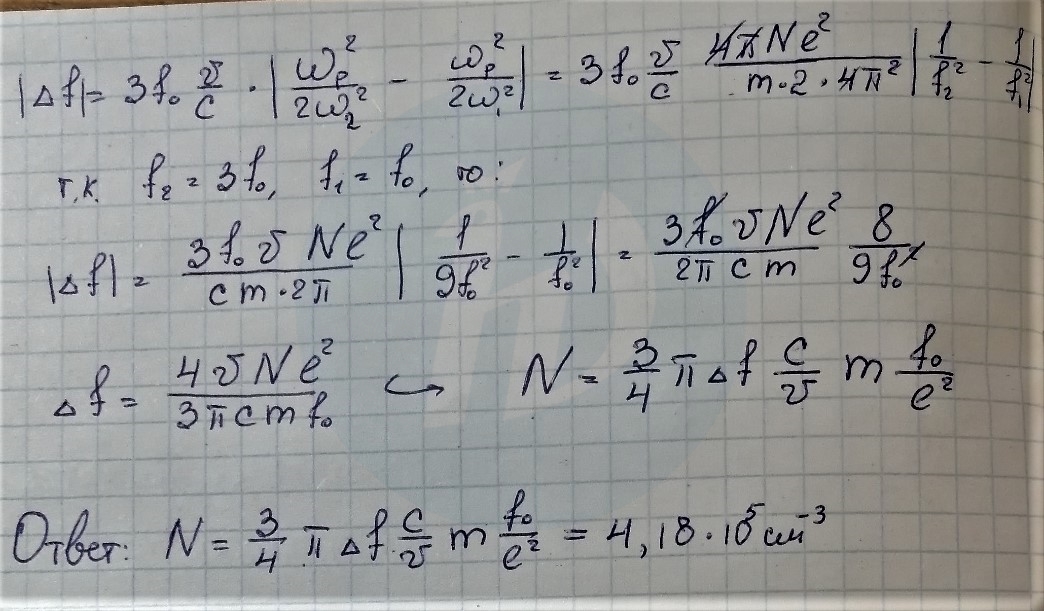 |Δf| = 3f₀ v/c · |ωₚ²/2ω₂² − ωₚ²/2ω₁²| = 3f₀ v/c 4πNe²/(m·2·4π²) |1/f₂² − 1/f₁²|
т.к. f₂ = 3f₀, f₁ = f₀, то:
|Δf| = 3f₀vNe²/(cm·2π) |1/9f₀² − 1/f₀²| = 3f₀vNe²/(2πcm) 8/9f₀²
Δf = 4vNe²/(3πcmf₀) ↪ N = 3/4 π Δf c/v m f₀/e²
Ответ: N = 3/4 π Δf c/v m f₀/e² = 4,18·10⁵ см⁻³